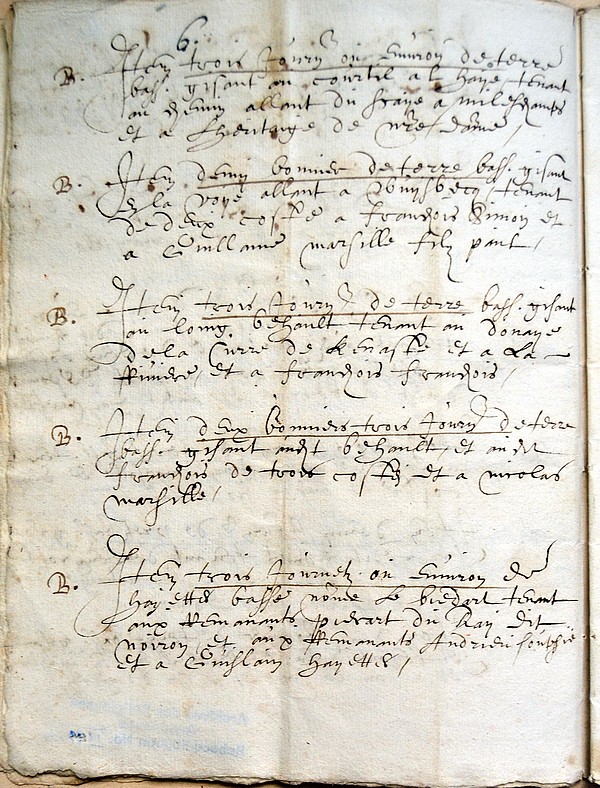 6.
B. Item trois Journ ou environ de terre
bass. gisant au courtil a l haye tenant
au chemin allant du
et a Lheritaige de nre dame /
B. Item demy bonnier de terre bass. gisant
en la voye allant a tenant
de deux costé a franchois Simon et
a Guillaume marsille filz
B. Item trois Journ de terre bass. gisant
au loing behault tenant au donaye
de la Curre de Kenaste et a La
Riviere, et a franchois franchois,
B. Item deux bonniers trois Journ de terre
bass. gisant audt behault, et audt
franchois de trois costez et a nicolas
marsille,
B. Item trois Journetz ou environ de
hayettes basse nomé Le tenant
aux Remanants pierart du dit
noiron et aux Remanants Andrieu
et a Guislain hayettes,